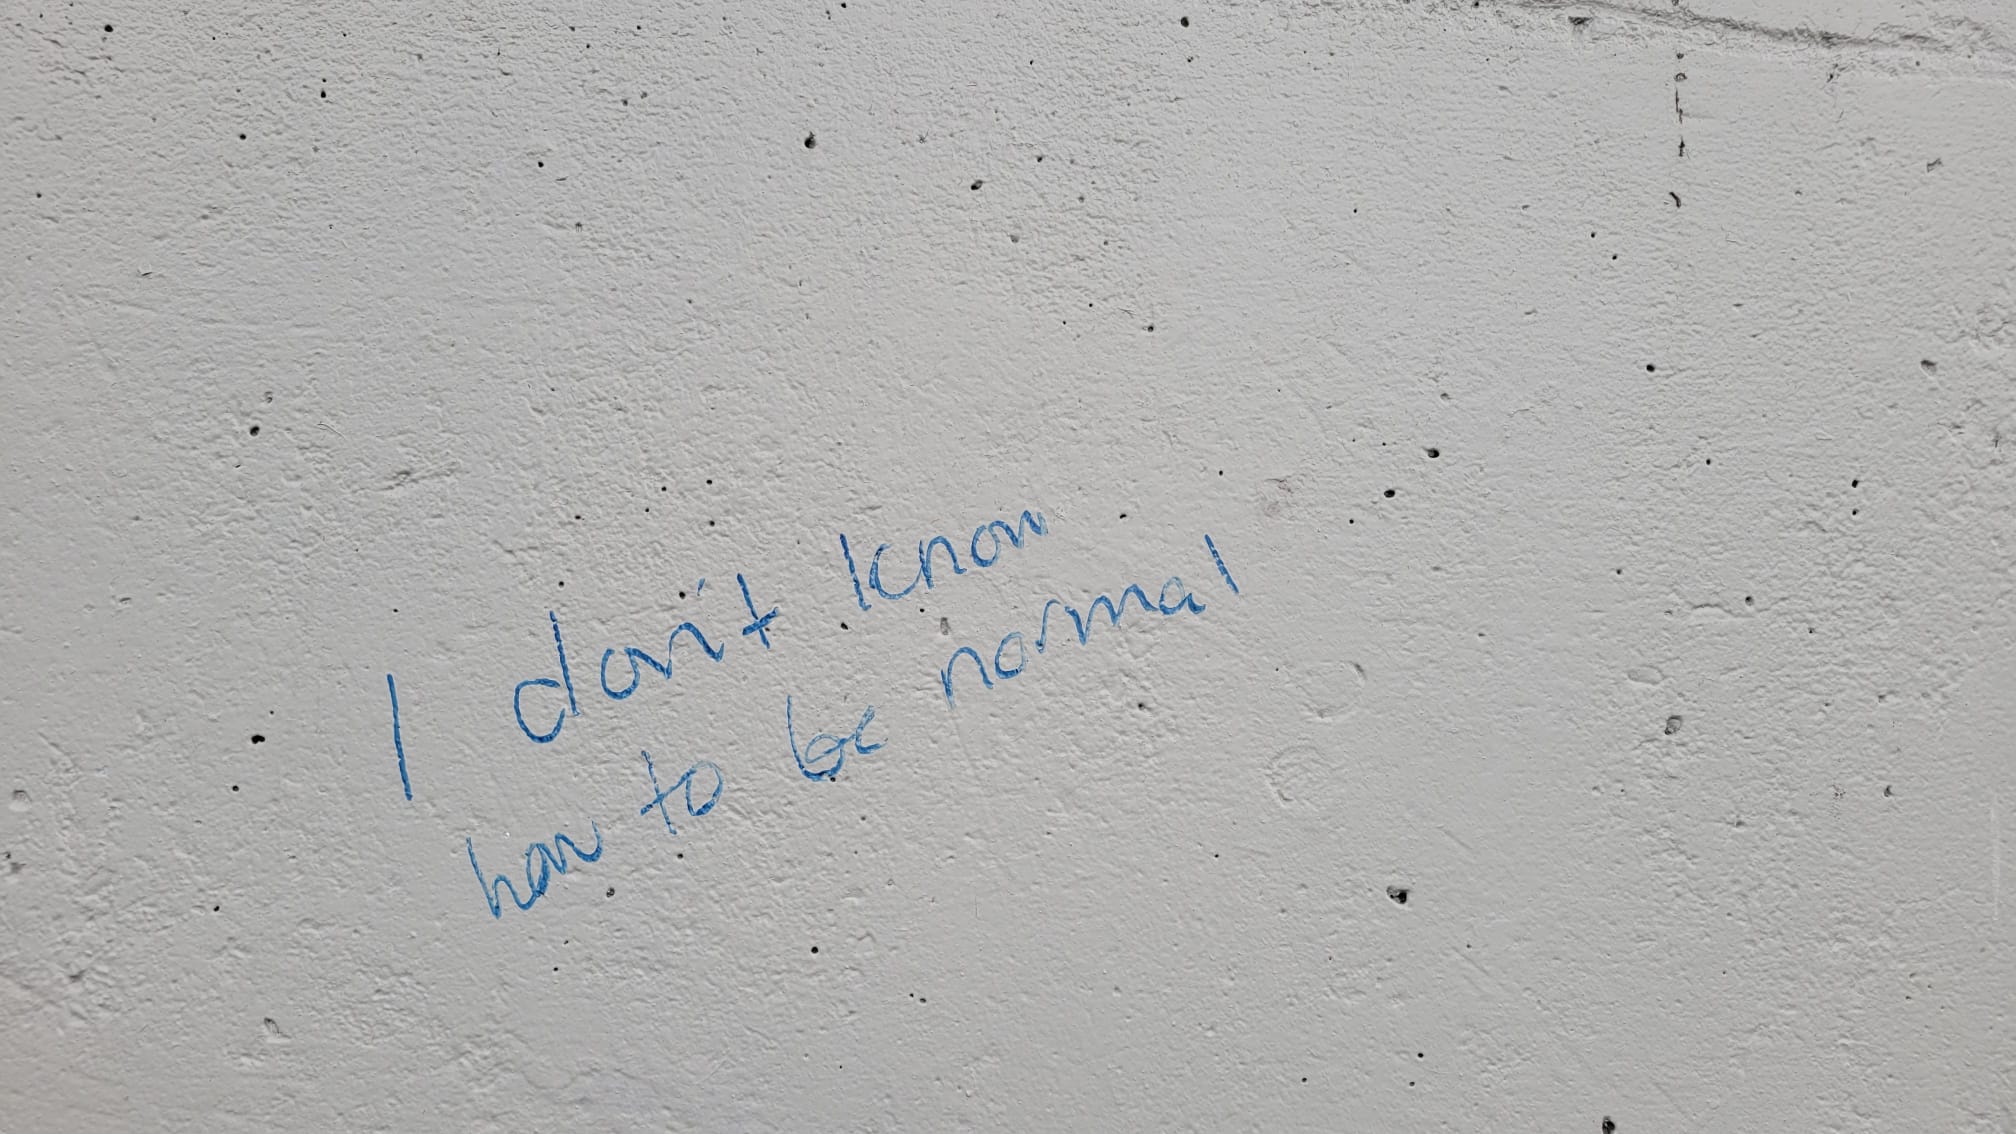 I don't know
how to be normal